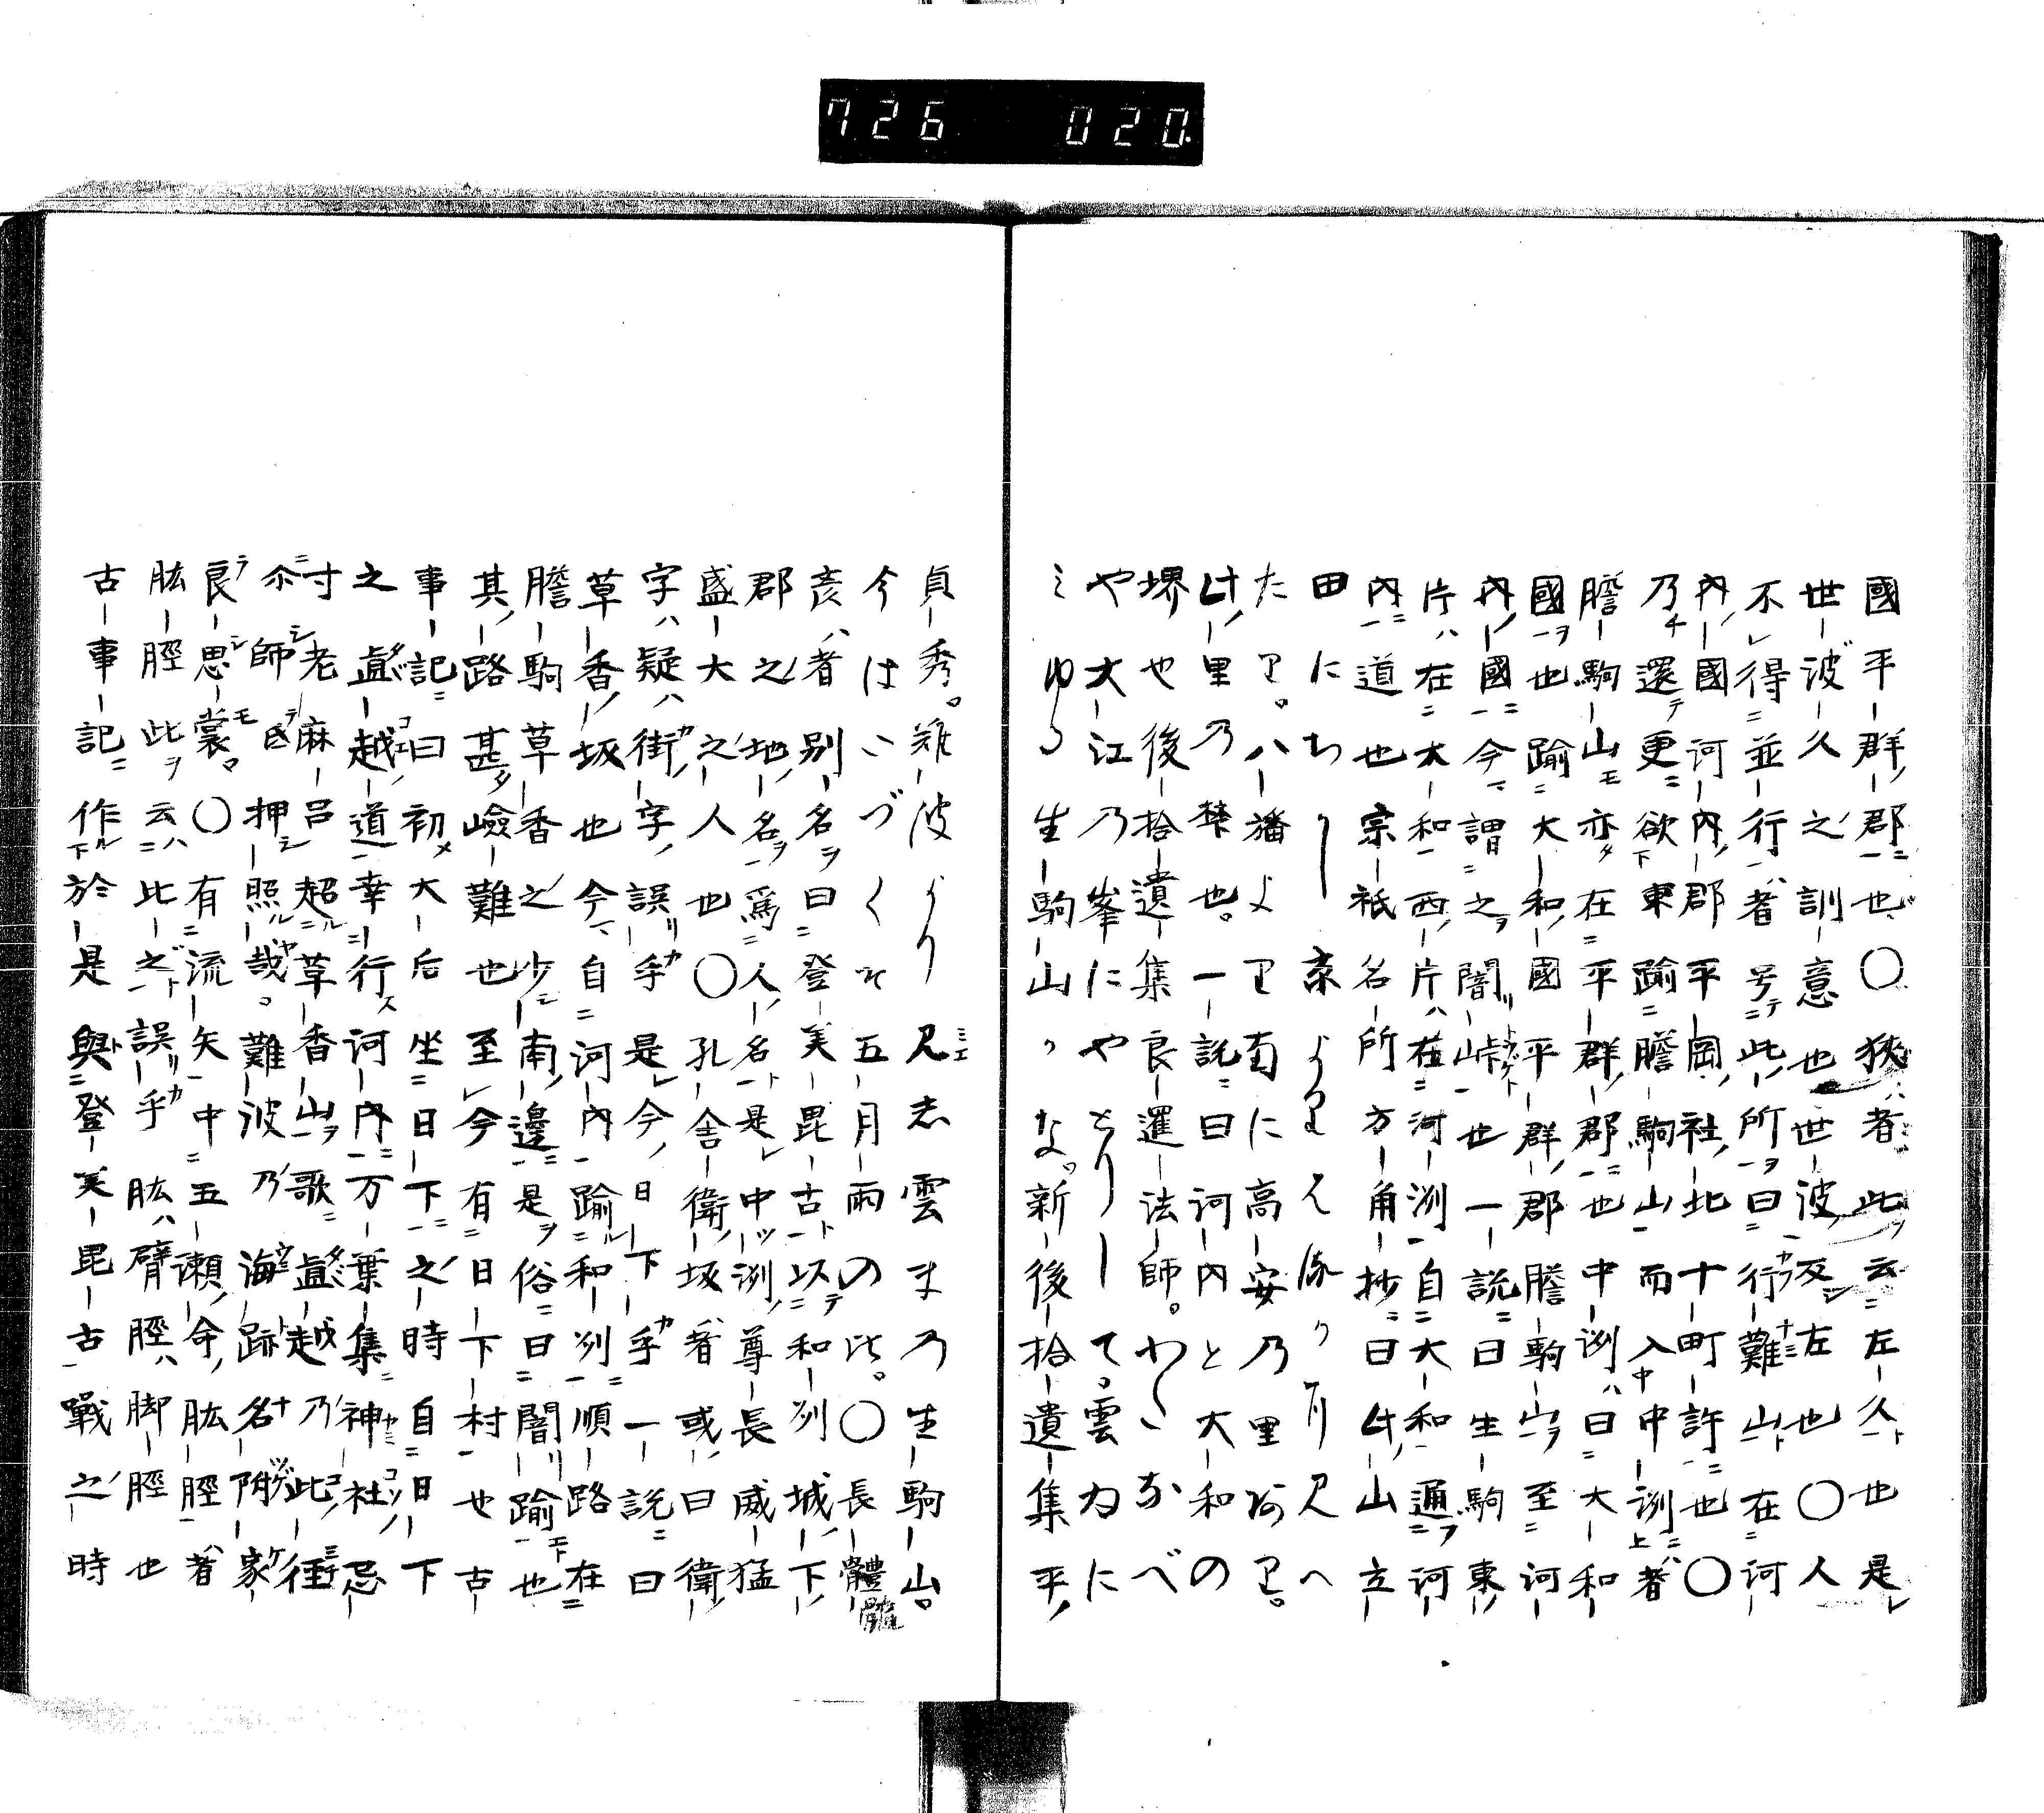 726 020
國平群郡也○狹者此云左久也是
世波久之訓意也世波反左也○人
不得並行者号此所曰行難山在河
內國河內郡平岡社北十町許也○
乃還更欲東踰膽駒山而入中洲者
膽駒山亦在平群郡也中洲曰大和
國也踰大和國平群郡膽駒山至河
內國今謂之闇峠也一說曰生駒東
片在大和西片在河洲自大和通河
內道也宗祇名所方角抄曰此山立
田にちり 京より見
たり。八旛より南に高安乃里あり。
此里乃禁也。一說曰河內と大和の
堺や後拾遺集良暹法師。わたなべ
や大江乃峯にやとりして。雲ゐに
ミゆる生駒山かな。新後拾遺集平
貞秀。難波より見志雲ま乃生駒山。
今はいづくそ五月雨の比。○長髓
彦者別名曰登美毘古以和刕城下
郡之地名爲人名是中洲尊長威猛
盛大之人也○孔舎衛坂者或曰衛
字疑街字誤乎是今日下乎一說曰
草香坂也今自河內踰和刕順路在
膽駒草香之少南邊是俗曰闇踰也
其路甚嶮難也至今有日下村也古
事記曰初大后坐日下之時自日下
之直越道幸行河內万葉集神社忌
寸老麻呂超草香山歌直越乃此徑
尒師弖押照哉。難波乃海跡名附家
良思裳。○有流矢中五瀬命肱脛者
肱脛此云比之誤乎肱臂脛脚脛也
古事記作於是與登美毘古戰之時